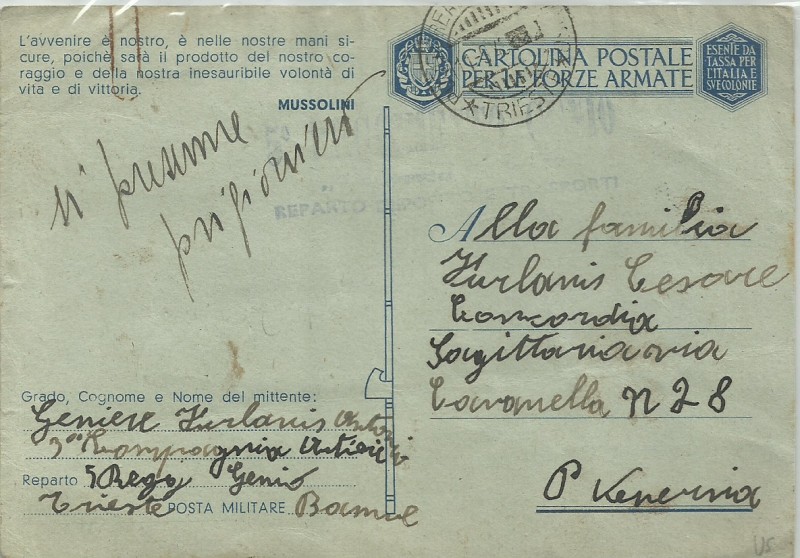 L'avvenire è nostro, è nelle nostre mani si-
cure, poichè sarà il prodotto del nostro co-
raggio e della nostra inesauribile volontà di
vita e di vittoria.
MUSSOLINI
CARTOLINA POSTALE
PER LE FORZE ARMATE
ESENTE DA
TASSA PER
L'ITALIA E
SVE COLONIE
TRIESTE
si presume
prigioniero
REPARTO
Alla familia
Furlanis Cesare
Concordia
Sagittaria via
Cavanella N 28
P Venezia
Grado, Cognome e Nome del mittente:
Geniere Furlanis Antonio
3ª Compagnia Artieri
Reparto 5 Regg Genio
Trieste POSTA MILITARE
US